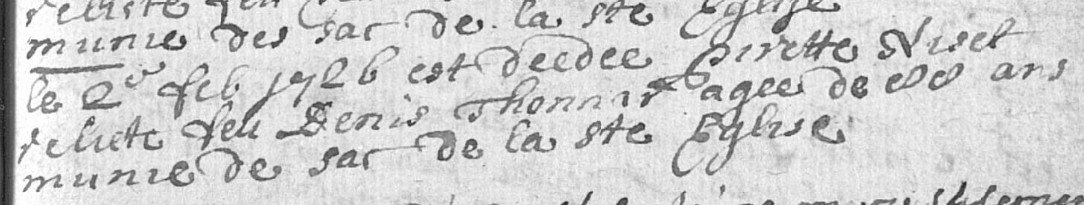 munie des sac de la ste Eglise
le 2e feb 1726 est decdee pirette Niset
relicte feu Denis Thonnar agee de 88 ans
munie de sac de la ste Eglise